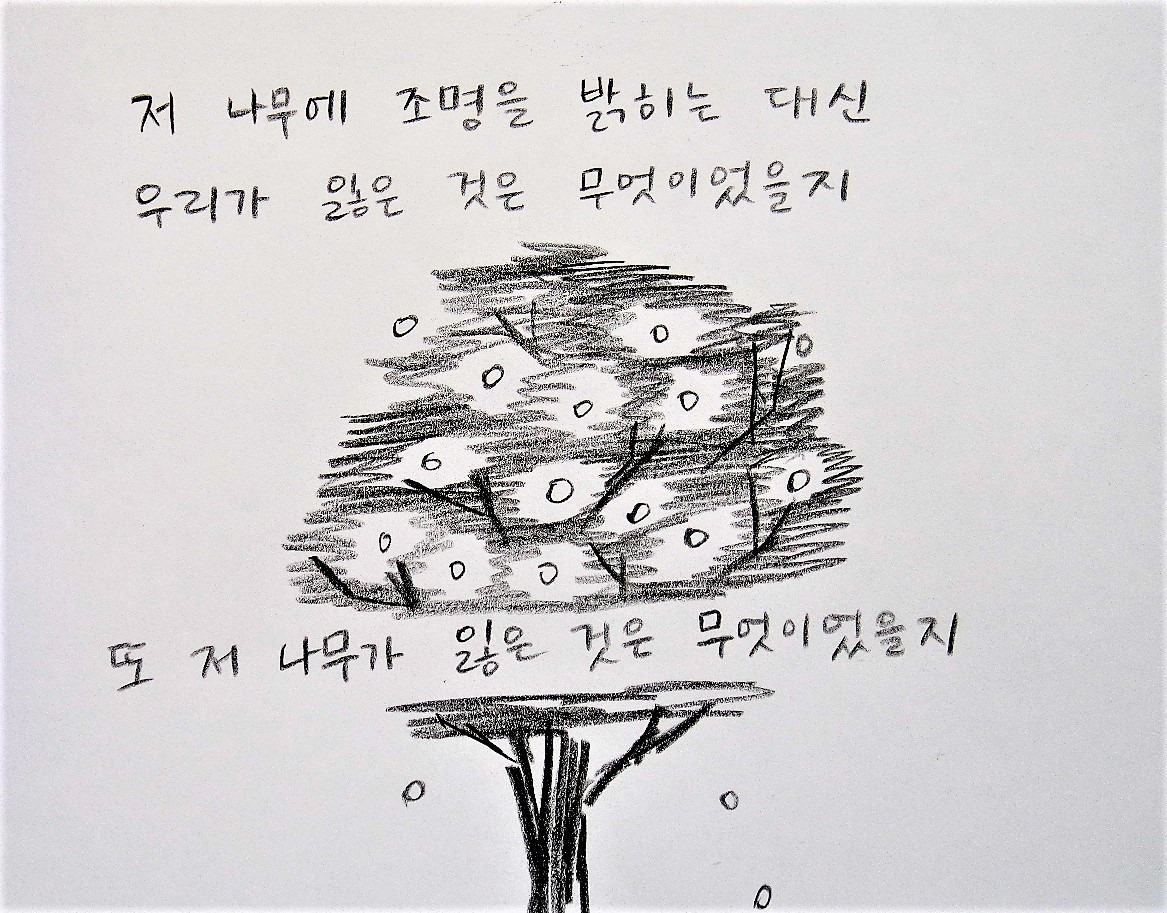 저 나무에 조명을 밝히는 대신
우리가 잃은 것은 무엇이었을지
또 저 나무가 잃은 것은 무엇이었을지